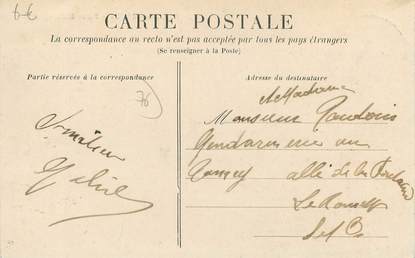 6€
CARTE POSTALE
La correspondance au recto n'est pas acceptée par tous les pays étrangers
(Se renseigner à la Poste)
Partie réservée à la correspondance
Adresse du destinataire
76
et Madame
Monsieur
Gendarmerie au
Raincy allé de la Fontaine
Le Raincy
S et O.